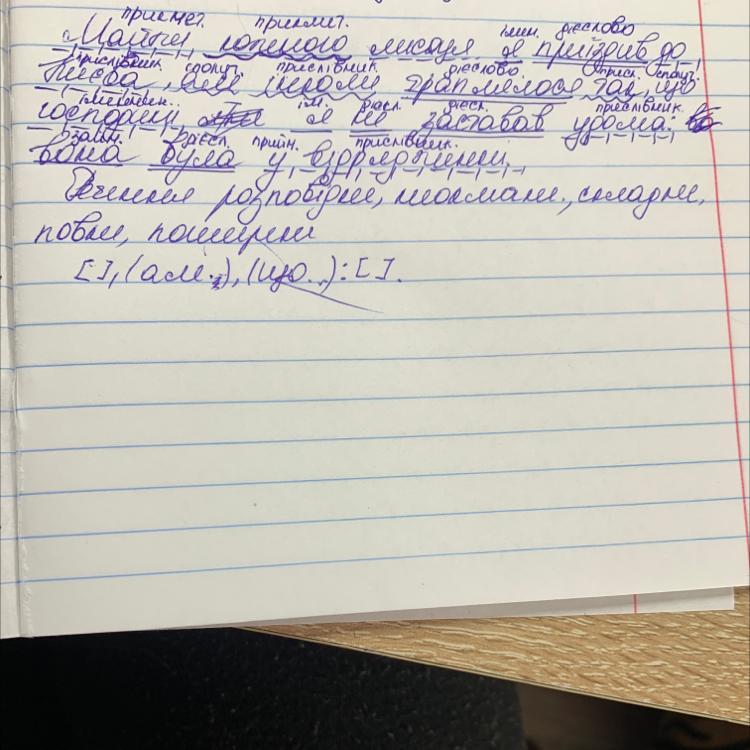 прикмет. прикмет. імен. дієслово
Майже кожного місяця я приїздив до
прислівник спол. прислівник дієслово присл. спол.
Києва, але інколи траплялося так, що
ім. дієсл. прислівник.
господині я не заставав удома:
займ. дієсл. прийм. прислівник.
вона була у відрядженні.
Речення розповідне, неокл., складне,
повне, поширене
[ ], (але..), (що..): [ ].